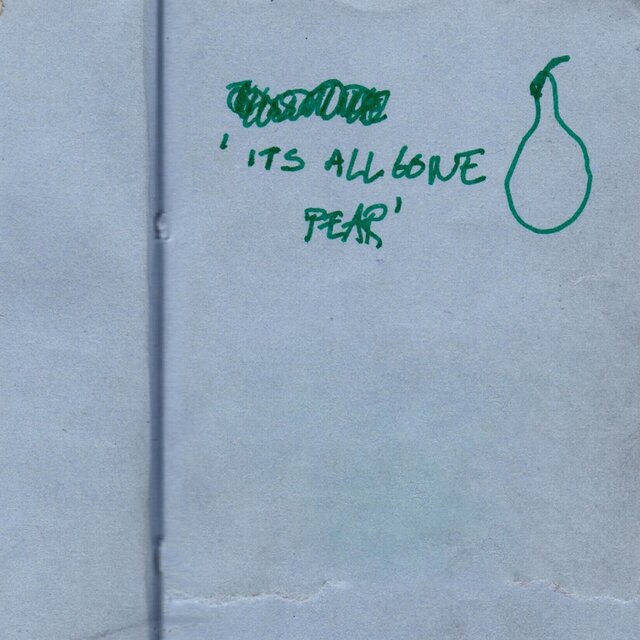 'ITS ALL GONE
PEAR'